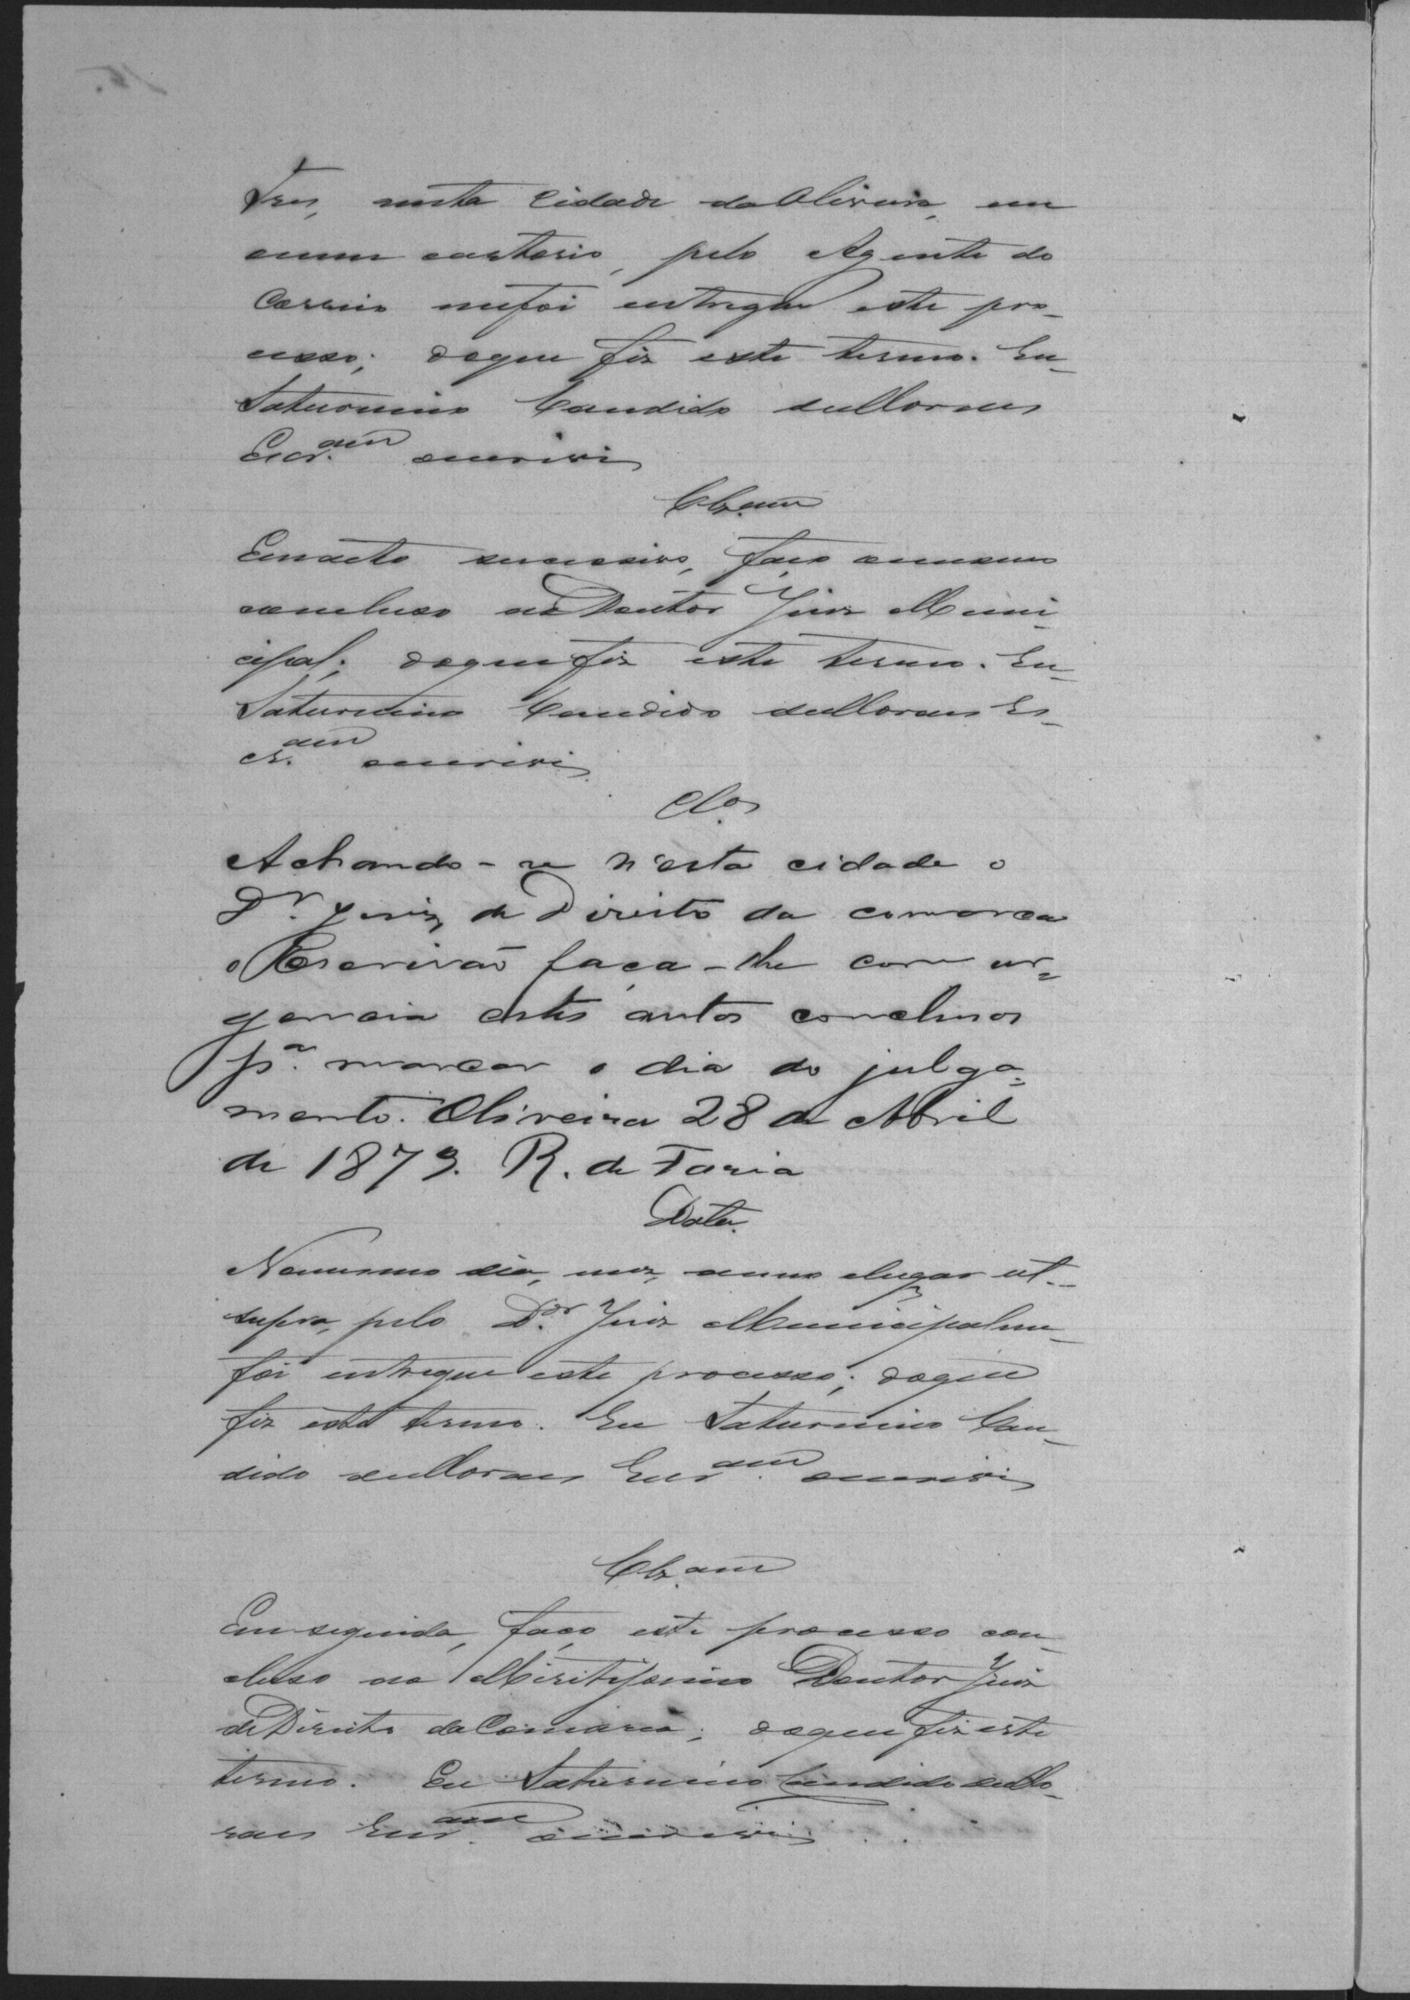 tres, nesta Cidade da Oliveira, em
omeu cartorio, pelo Agente do
Correio mefoi entregue este pro-
cesso; doque fiz este termo. Eu
Saturnino Candido deMoraes
Escr.am oescrevi
Clz.am
Emacto successivo, faço omesmo
concluso ao Doutor Juiz Muni-
cipal; doquefiz este termo. Eu
Saturnino Candido deMoraes Es-
cr.am oescrevi
Clos
Achando-se n'esta cidade o
Dr. Juiz de Direito da comarca
o Escrivão faça-lhe com ur-
gencia estes autos conclusos
pa. marcar o dia do julga-
mento. Oliveira 28 de Abril
de 1879. R. de Faria
Data.
Nomesmo dia, mez, anno elugar ut-
supra, pelo D.or Juiz Municipalme
foi entregue este processo; doque
fiz este termo. Eu Saturnino Can-
dido deMoraes Escr.am oescrevi
Clz.am
Emseguida, faço este processo con-
cluso ao Meritissimo Doutor Juiz
deDireito daComarca; doque fiz este
termo. Eu Saturnino Candido deMo-
raes Escr.am oescrevi